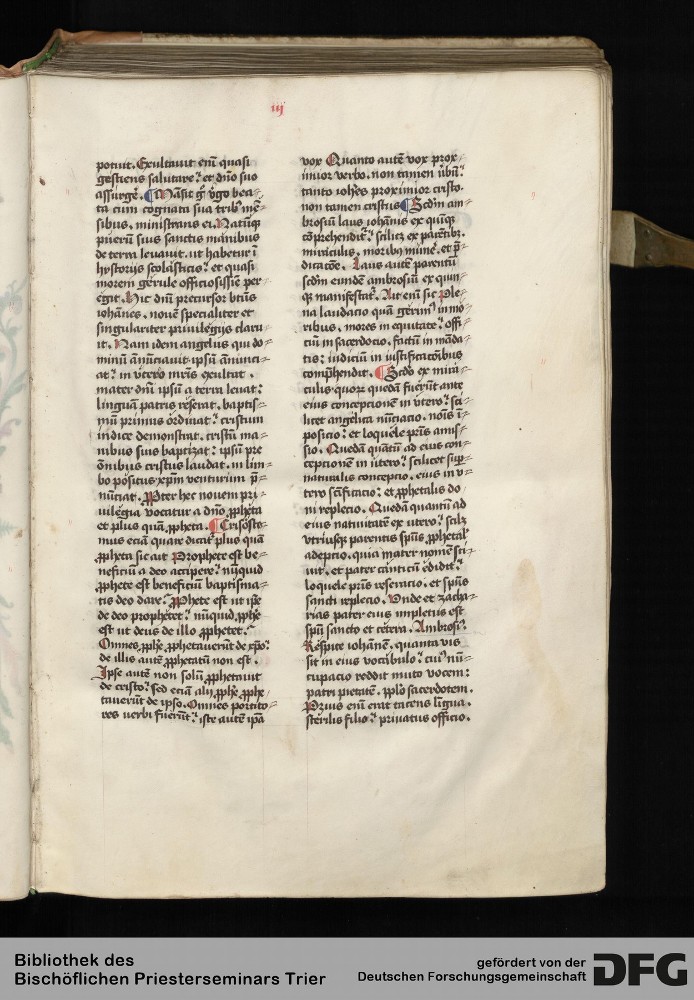 iij
potuit. Exultauit em̄ quasi
gestiens salutare: et dn̄o suo
assurgē. Māsit g° v̓go bea-
ta cum cognata sua trib9 mē-
sibus. ministrans ei. Natūq3
puerū suis sanctis manibus
de terra leuauit. ut habetur ī
hystorijs scolasticis: et quasi
morem gerule officiosissīe per-
egit. Hic dnī precursor btūs
iohānes. nouē specialiter et
singulariter priuilegijs claru-
it. Nam idem angelus qui do-
minū ānūciauit ipsū ānūnci-
at: in vtero mr̄is exultat.
mater dnī ipsū a terra leuat:
linguā patris reserat. baptis-
mū primus ordinat: cristum
indice demonstrat. cristū ma-
nibus suis baptizat: ipsū pre
ōnibus cristus laudat. in lim-
bo positis xp̄m venturum p̄-
nūciat. Ppter hec nouem pri-
uilegia vocatur a dn̄o ppheta
et plus quā ppheta. Crisosto-
mus eciā quare dicat̓ plus quā
ppheta sic ait Prophete est be-
neficiū a deo accipere: nūquid
pphete est beneficiū baptisma-
tis deo dare: Pphete est ut ip̄e
de deo prophetet: nūquid pphe
est ut deus de illo pphetet:
Omnes pphe pphetauerūt de xp̄o:
de illis autē pphetatū non est.
Ipse autē non solū pphetauit
de cristo: sed eciā alij pphe pphe-
tauerūt de ipso. Omnes portito-
res verbi fuerūt: iste autē ip̄a
vox Quanto autē vox prox-
imior verbo. non tamen v̓bū:
tanto ioh̄es proximior cristo.
non tamen cristus Scd̄m am-
brosiū laus iohānis ex quīq3
cōprehendit̓: scilicz ex parētib3.
miraculis. morib9 munē. et p̄-
dicacōe. Laus autē parentū
scd̄m eundē ambrosiū ex quin-
q3 manifestat̓. Ait em̄ sic Ple-
na laudacio quā gerim9 in mo-
ribus. mores in equitate: offi-
ciū in sacerdocio. factū in māda-
tis: iudiciū in iustificacōibus
comp̄hendit. Scd̄o ex mira-
culis. quor̄ quedā fuerūt ante
eius concepcionē in vtero: sci-
licet angelica nūciacio. nois ī-
posicio: et loquele pr̄is amis-
sio. Quedā quātū ad eius con-
cepcionē in utero: scilicet sup̄-
naturalis concepcio. eius in v-
tero scīficacio: et pphetalis do
ni replecio. Quedā quantū ad
eius natiuitatē ex utero: scilz
vtriusq3 parentis spūs pphetal'
adepcio. quia mater nomē sci-
uit. et pater cāticū edidit:
loquele pr̄is reseracio. et spūs
sancti replecio. Unde et zacha-
rias pater eius impletus est
spū sancto et cetera. Ambrosi9:
Respice iohānē. quanta vis
sit in eius vocabulo: cui9 nū-
cupacio reddit muto vocem:
patri pietatē. pplo sacerdotem.
Prius em̄ erat tacens līgua.
sterilis filio: priuatus officio.
Bibliothek des
Bischöflichen Priesterseminars Trier
gefördert von der
Deutschen Forschungsgemeinschaft
DFG